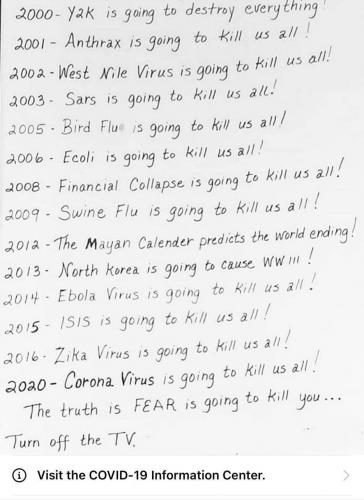 2000- Y2K is going to destroy everything!
2001 - Anthrax is going to kill us all!
2002-West Nile Virus is going to kill us all!
2003- Sars is going to kill us all!
2005- Bird Flu is going to kill us all!
2006- Ecoli is going to kill us all!
2008- Financial Collapse is going to kill us all!
2009- Swine Flu is going to kill us all!
2012-The Mayan Calender predicts the world ending!
2013- North Korea is going to cause WW III!
2014- Ebola Virus is going to kill us all!
2015- ISIS is going to kill us all!
2016- Zika Virus is going to kill us all!
2020- Corona Virus is going to kill us all!
The truth is FEAR is going to kill you...
Turn off the TV.
Visit the COVID-19 Information Center.